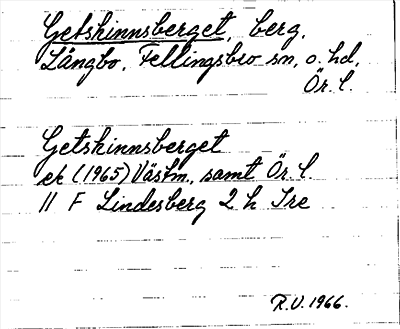 Getskinnsberget, berg,
Längbo, Fellingsbro sn, o. hd,
Ör. l.
Getskinnsberget
ek (1965) Västm., samt Ör. l.
11 F Lindesberg 2 h Tre
R.V. 1966.